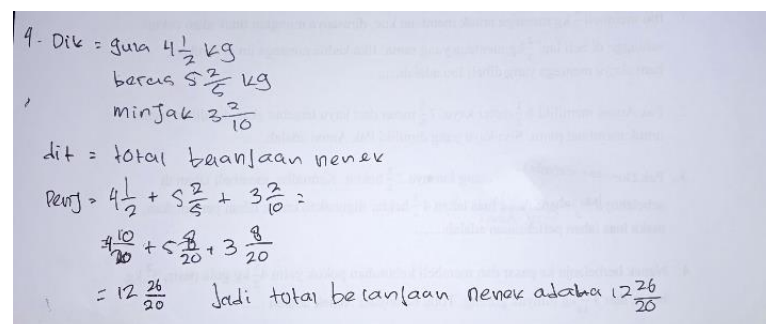 4. Dik = gula 4 1/2 kg
beras 5 2/5 kg
minjak 3 2/10
dit = total belanjaan nenek
Penyj = 4 1/2 + 5 2/5 + 3 2/10 =
= 4 10/20 + 5 8/20 + 3 8/20
= 12 26/20 Jadi total belanjaan nenek adalha 12 26/20